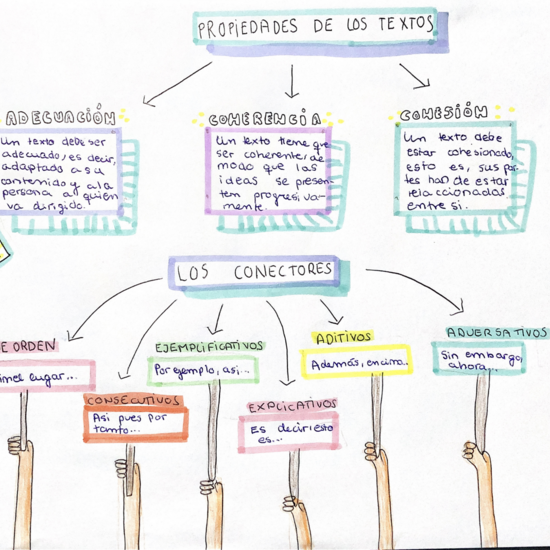 PROPIEDADES DE LOS TEXTOS
ADECUACIÓN
Un texto debe ser
adecuado, es decir,
adaptado a su
contenido y a la
persona a quien
va dirigido.
COHERENCIA
Un texto tiene que
ser coherente, de
modo que las
ideas se presen-
ten progresiva-
mente.
COHESIÓN
Un texto debe
estar cohesionado,
esto es, sus par-
tes han de estar
relaccionados
entre sí.
LOS CONECTORES
E ORDEN
lugar...
CONSECUTIVOS
Así pues, por
tanto...
EJEMPLIFICATIVOS
Por ejemplo, así...
EXPLICATIVOS
Es decir, esto
es...
ADITIVOS
Además, encima...
ADVERSATIVOS
Sin embargo,
ahora...